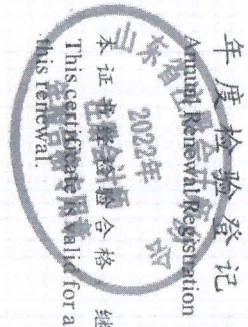 年度检验登记
Annual Renewal Registration
本证书经检验合格，继
This certificate is valid for a
this renewal.
山东省注册会计师协会
2022年
注册会计师